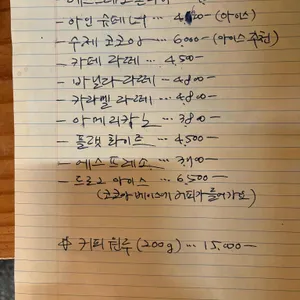 - 아인슈페너 … 4,500 - (아이스)
- 수제 코코아 … 6,000 - (아이스 추천)
- 카페 라떼 … 4,500 -
- 바닐라 라떼 … 4,800 -
- 카라멜 라떼 … 4,800 -
- 아메리카노 … 3,800 -
- 플랫 화이트 … 4,500 -
- 에스프레소 …
- 드로그 아이스 … 6,500 -
(코코아 베이스에 커피가 들어가요)
커피 원두 (200g) … 15,000 -